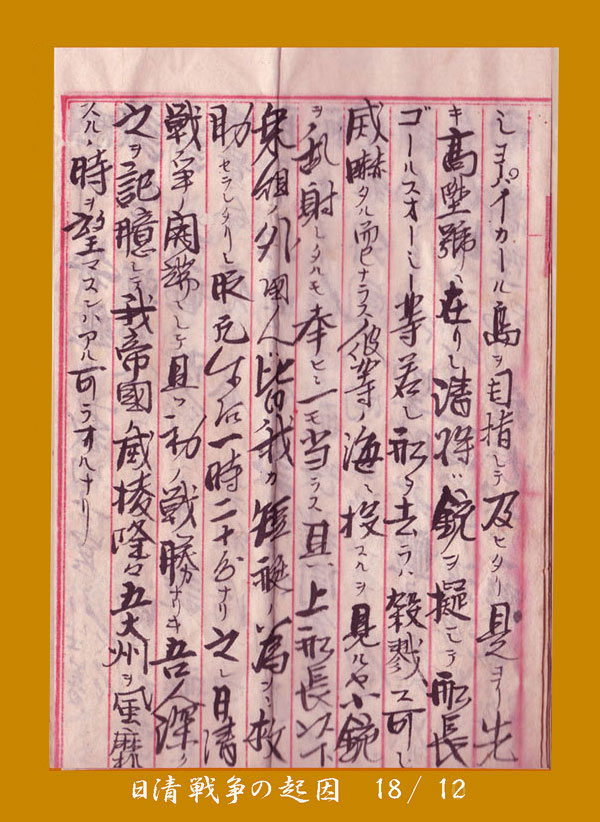 シヨパイカール島ヲ目指シテ及ヒタリ是ヨリ先
キ高陞號ニ在リシ清将ハ銃ヲ擬シテ船長
ゴールスオーシー等若シ船ヲ去ラハ殺戮ス可シ
威嚇タル而已ナラス彼等ノ海ニ投スルヲ見ルヤ小銃
ヲ乱射シタルモ幸ヒニ一モ当ラス且上船長以下
乗組ノ外国人ハ皆我カ短艇ノ為ニ救
助セラレタリ 午后一時二十分ナリ之レ日清
戦争ノ開端ニシテ且ツ初ノ戦勝ナリキ吾人深ク
之ヲ記臆シテ我帝國ノ威稜隆々五大州ヲ風靡
スルノ時ヲ望マスンハアル可ラサルナリ
日清戦争の起因 18/12